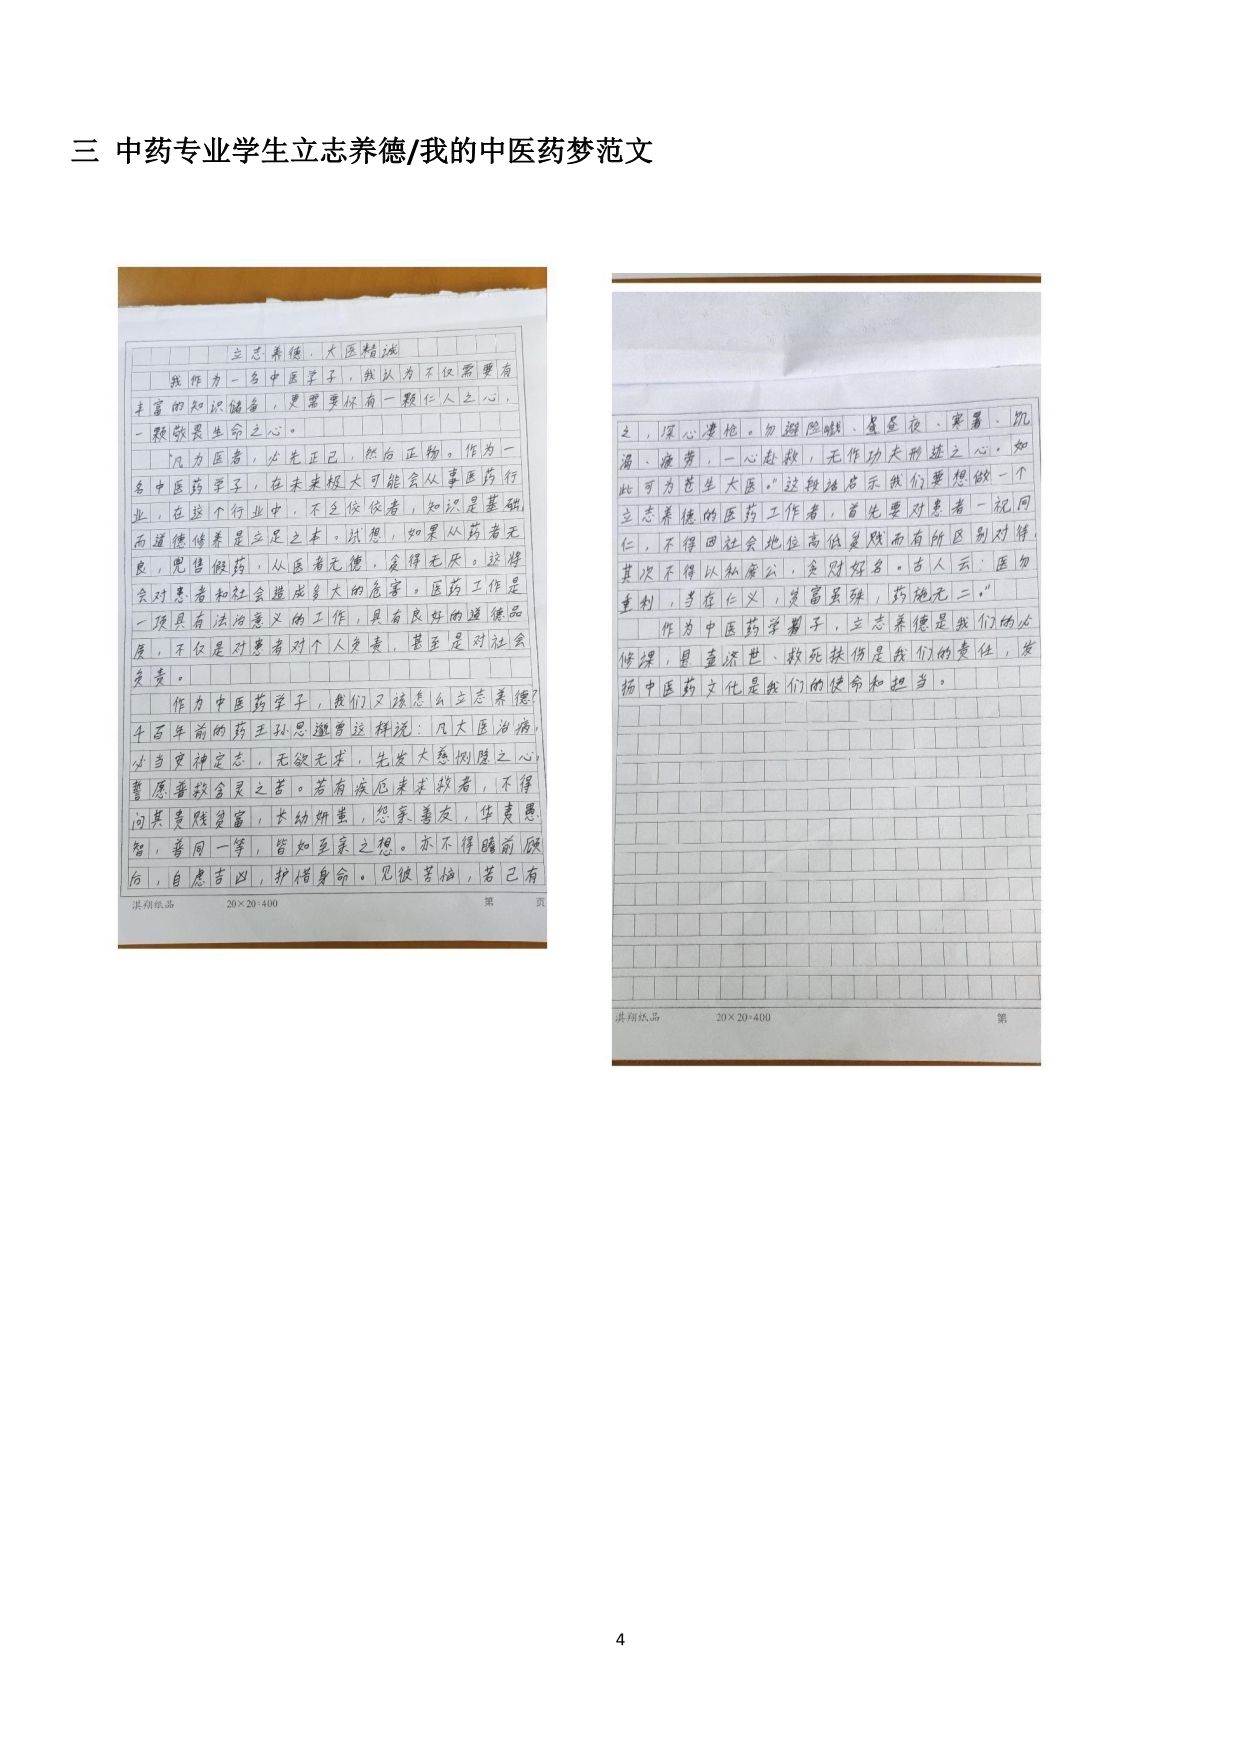 三 中药专业学生立志养德/我的中医药梦范文
立志养德，大医精诚
我作为一名中医学子，我认为不仅需要有
丰富的知识储备，更需要怀有一颗仁人之心，
一颗敬畏生命之心。
"凡为医者，必先正已，然后正物。作为一
名中医药学子，在未来极大可能会从事医药行
业，在这个行业中，不乏佼佼者，知识是基础，
而道德修养是立足之本。试想，如果从药者无
良，兜售假药，从医者无德，贪得无厌。这将
会对患者和社会造成多大的危害。医药工作是
一项具有法治意义的工作，具有良好的道德品
质，不仅是对患者对个人负责，甚至是对社会
负责。
作为中医药学子，我们又该怎么立志养德？
千百年前的药王孙思邈曾这样说：凡大医治病，
必当安神定志，无欲无求，先发大慈恻隐之心，
誓愿普救含灵之苦。若有疾厄来求救者，不得
问其贵贱贫富，长幼妍蚩，怨亲善友，华夷愚
智，普同一等，皆如至亲之想。亦不得瞻前顾
后，自虑吉凶，护惜身命。见彼苦恼，若己有
淇翔纸品 20×20=400 第 页
之，深心凄怆。勿避险巇、昼夜、寒暑、饥
渴、疲劳，一心赴救，无作功夫形迹之心。如
此可为苍生大医。"这段话启示我们要想做一个
立志养德的医药工作者，首先要对患者一视同
仁，不得因社会地位高低贫贱而有所区别对待，
其次不得以私废公，贪财好名。古人云：医勿
重利，当存仁义，贫富虽殊，药施无二。"
作为中医药学子，立志养德是我们的必
修课，悬壶济世、救死扶伤是我们的责任，发
扬中医药文化是我们的使命和担当。
淇翔纸品 20×20=400 第
4